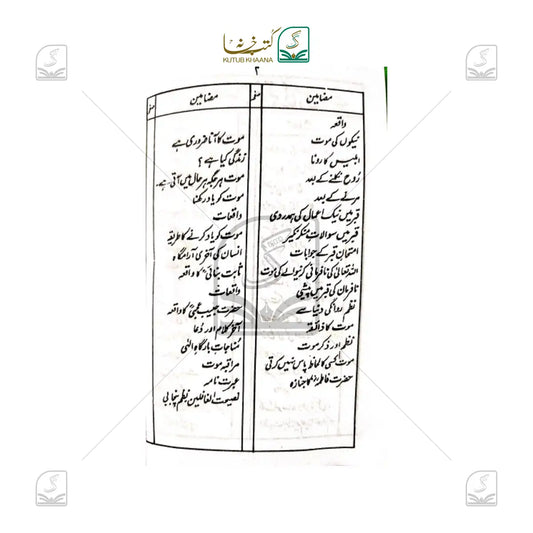 کتب خانہ
KUTUB KHAANA
۲
مضامین
صفحہ
مضامین
صفحہ
واقعہ
نیکوں کی موت
ابلیس کا رونا
رُوح نکلنے کے بعد
مرنے کے بعد
قبر میں نیک اعمال کی ہمدردی
قبر میں سوالات منکر نکیر
امتحانِ قبر کے جوابات
اللہ تعالیٰ کی نافرمانی کرنیوالے کی موت
نافرمان کی قبر میں پیشی
نظم روانگی دنیا سے
موت کا ذائقہ
نظم اور ذکر موت
موت کسی کا لحاظ پاس نہیں کرتی
حضرت فاطمہؓ کا جنازہ
موت کا آنا ضروری ہے
زندگی کیا ہے؟
موت ہر جگہ ہر حال میں آتی ہے۔
موت کو یاد رکھنا
واقعات
موت کو یاد کرنے کا طریقہ
انسان کی آخری آرامگاہ
ثابت بنانیؒ کا واقعہ
واقعات
حضرت حبیب عجمیؒ کا واقعہ
آخر کلام اور دُعا
مُناجات بارگاہِ الٰہی
مراقبہ موت
عبرت نامہ
نصیحت الغافلین نظم پنجابی